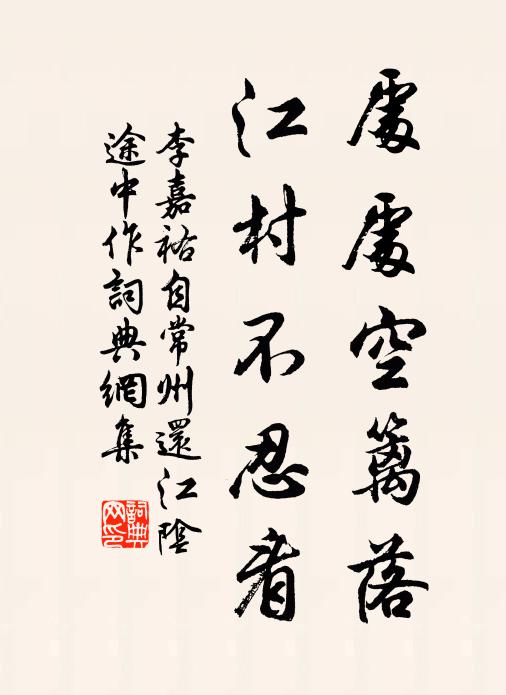 處處空籬落
江村不忍看
李嘉祐自常州還江陰
途中作詞典網集
詞典
网印